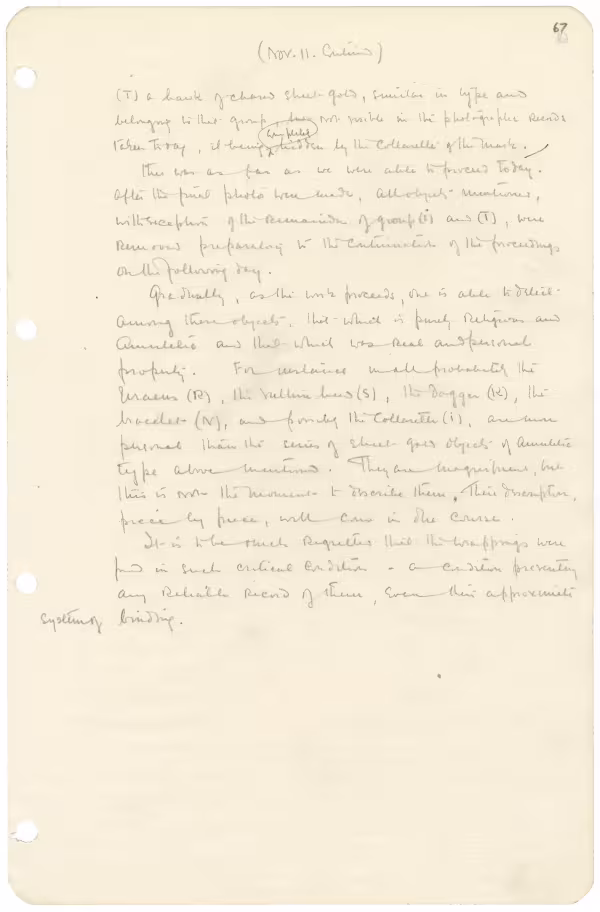 67
(Nov. 11. Continued)
(T) a hawk of chased sheet-gold, similar in type and
belonging to that group, was not visible in the photographic records
taken today, it being completely hidden by the Collarette of the mask.
This was as far as we were able to proceed today.
After the final photos were made, all objects mentioned,
with exception of the remainder of group and (T), were
removed preparatory to the continuation of the proceedings
on the following day.
Gradually, as the work proceeds, one is able to detect
among these objects, that which is purely religious and
Amuletic and that which was real and personal
property. For instance in all probability the
Uraeus (R), the vulture head (S), the Dagger (K), the
bracelet (N), and possibly the Collarette (I), are more
personal than the series of sheet-gold objects of Amuletic
type above mentioned. They are magnificent, but
this is not the moment to describe them. Their description,
piece by piece, will come in due course.
It is to be much regretted that the wrappings were
found in such critical condition - a condition preventing
any reliable record of them, even their approximate
system of binding.